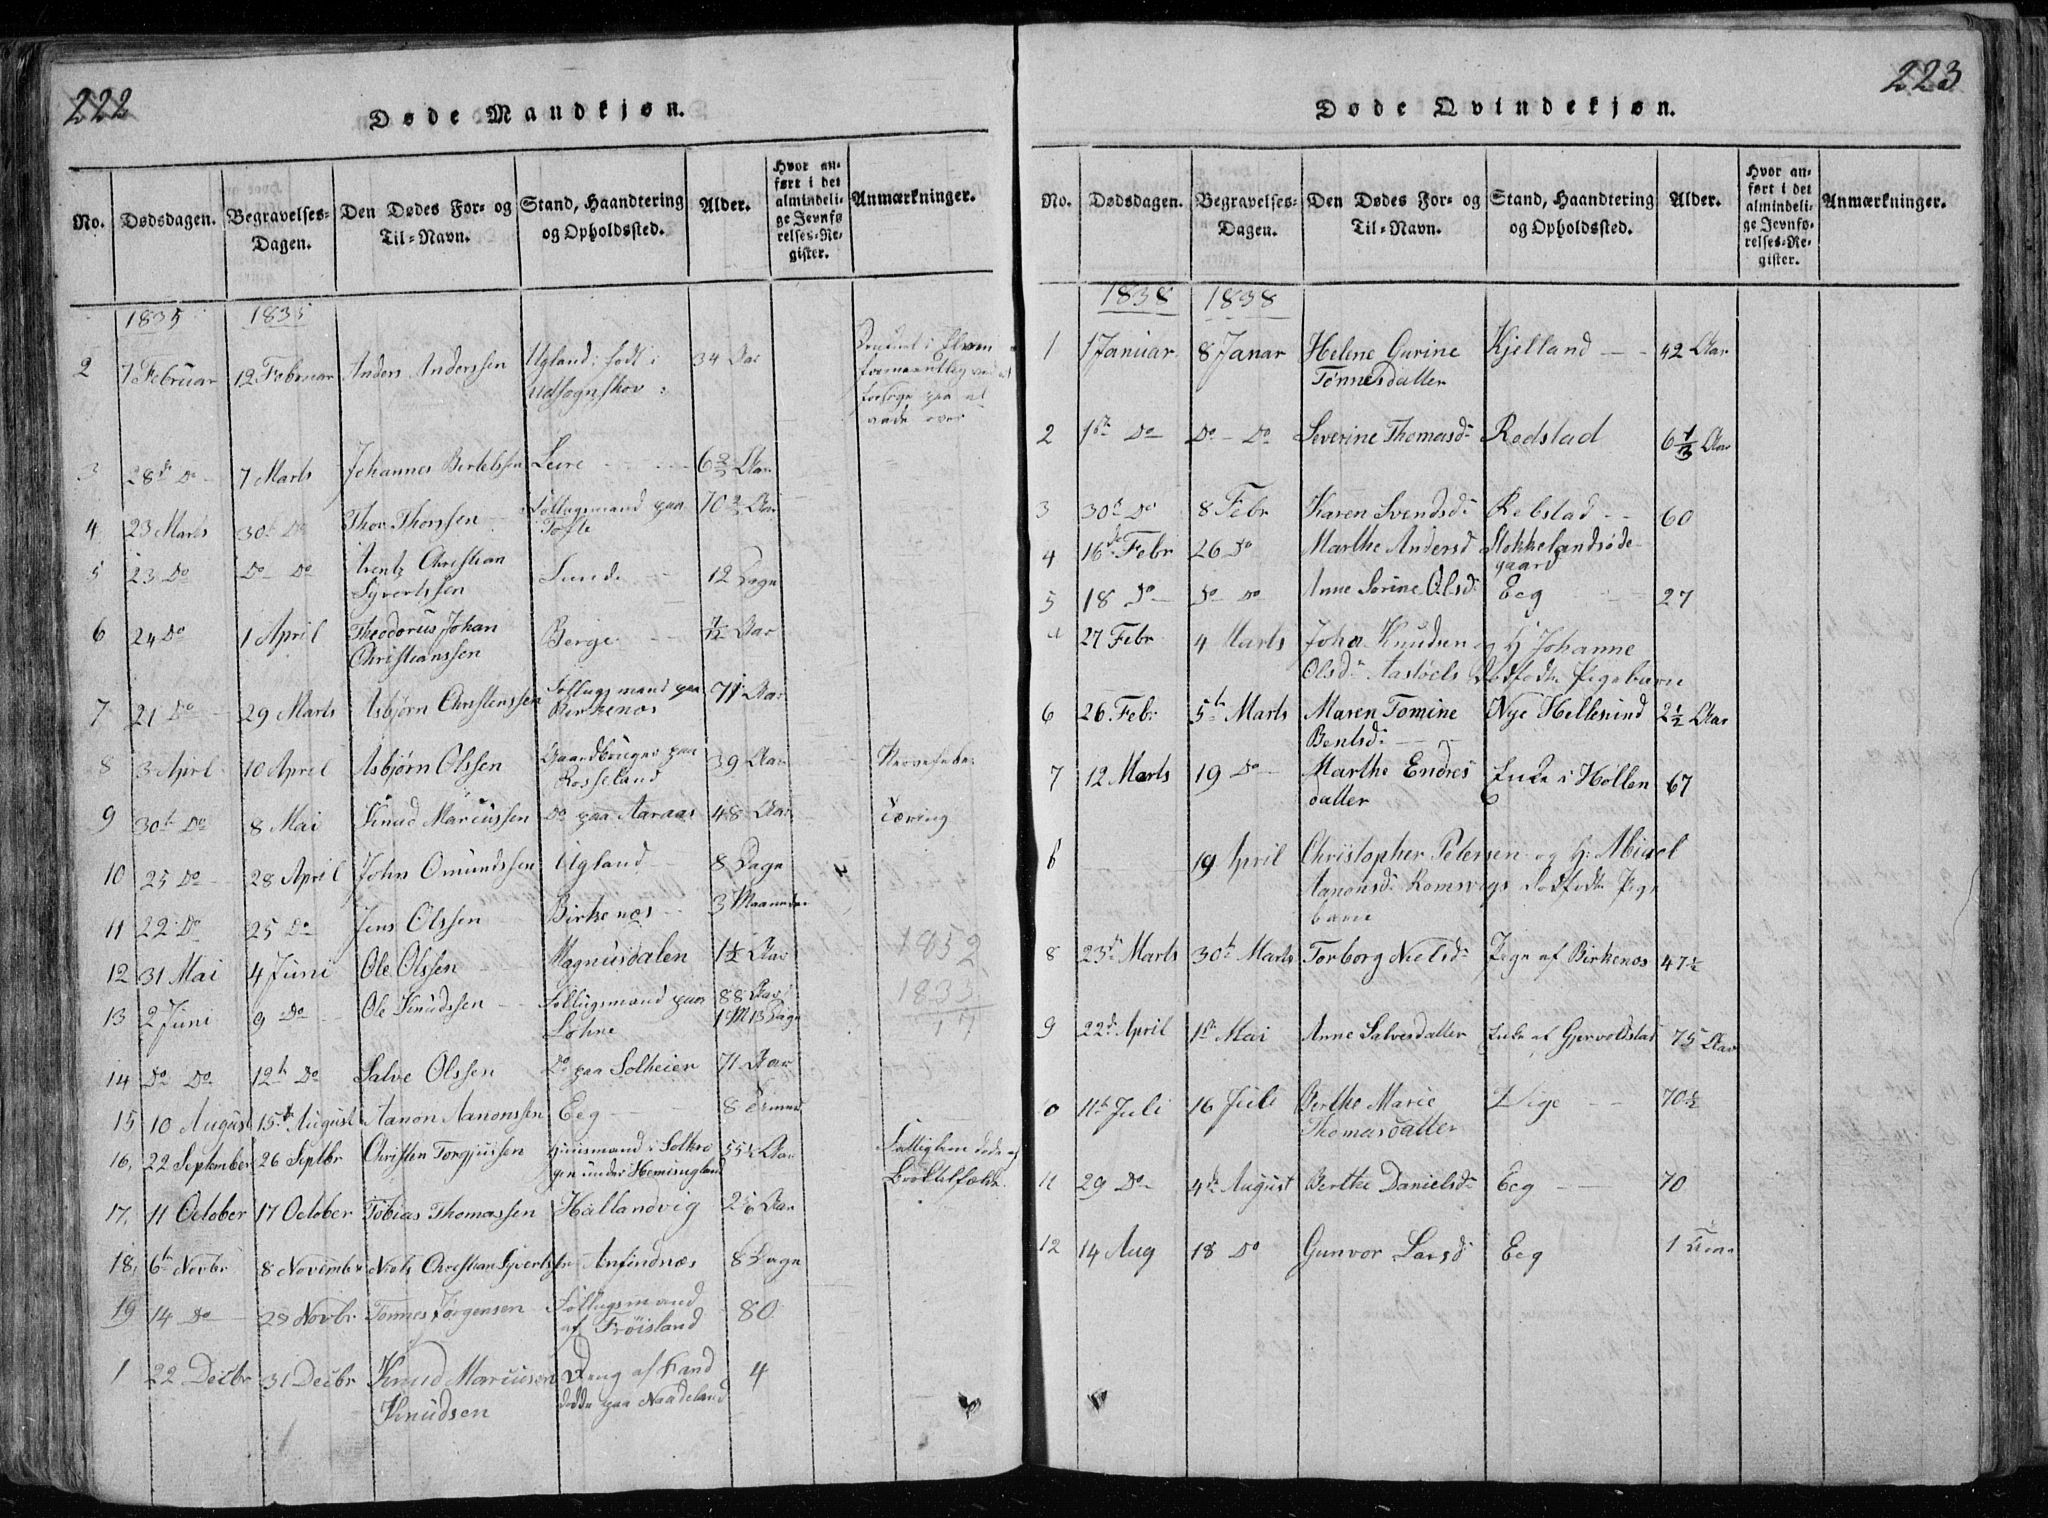 222
Døde Mandkjøn.
No. Dødsdagen. Begravelses-Dagen. Den Dødes For- og Til-Navn. Stand, Haandtering og Opholdssted. Alder. Hvor anført i det almindelige Jevnførelses-Register. Anmærkninger.
1835 1835
2 7 Februar 12 Februar Anders Anderssen Ugland: født i 34 Aar
Udsognskov: forsøge paa at vade over
3 28de Do 7 Marts Johannes Bertelssen Leire 6 2/3 Aar
4 23 Marts 30te Do Thor Thorssen Føllugsmand paa Tofte 70 2/3 Aar
5 23 Do Do Do Arentz Christian Syvertssen Lunde 12 Dage
6 24 Do 1 April Theodorus Johan Christianssen Berge 7/12 Aar
7 21 Do 29 Marts Asbjørn Christenssen Føllugsmand paa Birkenøs 71 Aar
8 3 April 10 April Asbjørn Olssen Gaardbruger paa Rosseland 39 Aar Nervefeber
9 30te Do 8 Mai Knud Marcussen Do paa Aaraas 48 Aar Tæring
10 25 Do 28 April John Omundssen Ugland 8 Dage
11 22 Do 25 Do Jens Olssen Birkenøs 3 Maaneder
12 31 Mai 4 Juni Ole Olssen Magnusdalen 1 1/2 Aar
1852
13 2 Juni 9 Do Ole Knudssen Føllugsmand paa Løhne 88 Aar 1 M 13 Dage
1835
17
14 Do Do 12te Do Salve Olssen Do paa Solheien 71 Aar
15 10 August 15de August Aanon Aanonssen Eeg 8
16, 22 September 26 Septbr Christen Torgjussen Huusmand i under 55 1/2 Aar
17, 11 October 17 October Tobias Thomassen Hallandvig 2 1/6 Aar
18, 6te Novbr 8 November Niels Christian Syvertss Anfindnæs 8 Dage
19 14 Do 29 Novbr Tønnes Jørgensen Føllugsmand af Frøisland 80
1 22 Decbr 31 Decbr Knud Marcusen Knudsen Dreng af døde paa Naadeland 4
223
Døde Qvindekjøn.
No. Dødsdagen. Begravelses-Dagen. Den Dødes For- og Til-Navn. Stand, Haandtering og Opholdssted. Alder. Hvor anført i det almindelige Jevnførelses-Register. Anmærkninger.
1838 1838
1 1 Januar 8 Janar Helene Gurine Tønnesdatter Kjelland 42 Aar
2 1ste Do Do Do Severine Thomasd: Redstad 6 1/3 Aar
3 30te Do 8 Febr Karen Svendsd: Rebstad 60
4 16de Febr 26 Do Marthe Andersd Stokkelandsødegaard
5 18 Do Do Do Anne Serine Olsd: Eeg 27
a 27 Febr 4 Marts Joha Knudsen og H Johanne
Olsd: Aastøels Dødfødte Pigebarn
6 26 Febr 5te Marts Maren Tomine Bentsd: Nye Hellesund 2 1/2 Aar
7 12 Marts 19 Do Marthe Endresdatter Enke i Høllen 67
b 19 April Christopher Petersen og H: Abigel
Aanonsd: Romsvigs Dødfødte Pigebarn
8 23de Marts 30te Marts Torborg Nielsd: Pige af Birkenøs 47 1/2
9 22de April 1ste Mai Anne Salvesdatter Enke af Gjervoldstad 75 Aar
10 11te Juli 16 Juli Berthe Marie Thomasdatter Dige 70 1/2
11 29 Do 4de August Berthe Danielsd: Eeg 70
12 14 Aug 18 Do Gunvor Larsd Eeg 1